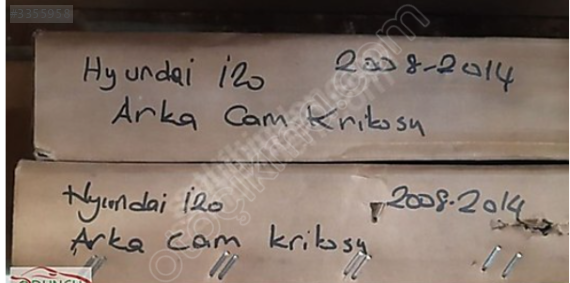 #3355958
Hyundai i20 2008-2014
Arka Cam Krikosu
Hyundai i20 2008-2014
Arka cam krikosu